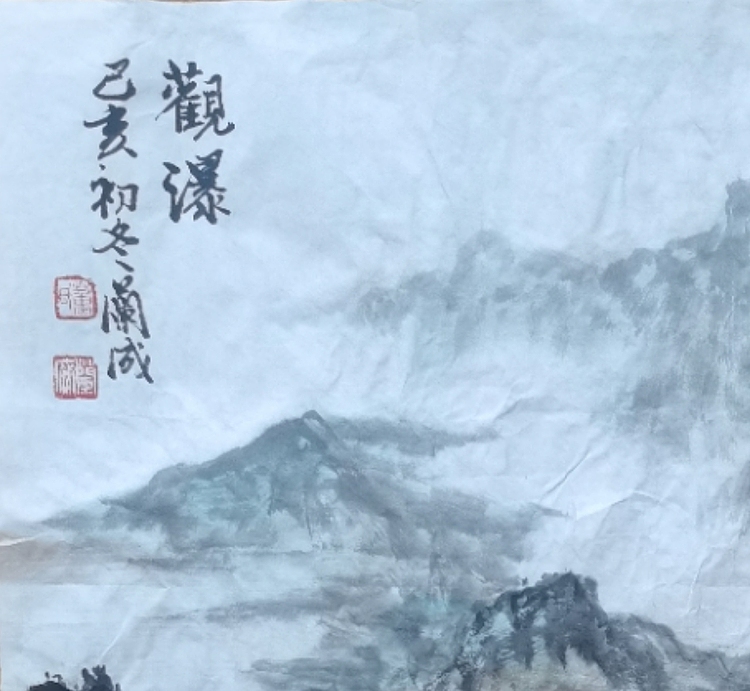 觀瀑
己亥初冬蘭成